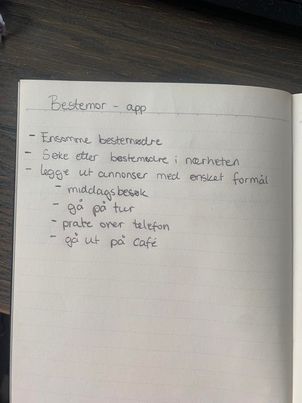 Bestemor - app
- Ensomme bestemødre
- Søke etter bestemødre i nærheten
- legge ut annonser med ønsket formål
- middagsbesøk
- gå på tur
- prate over telefon
- gå ut på café